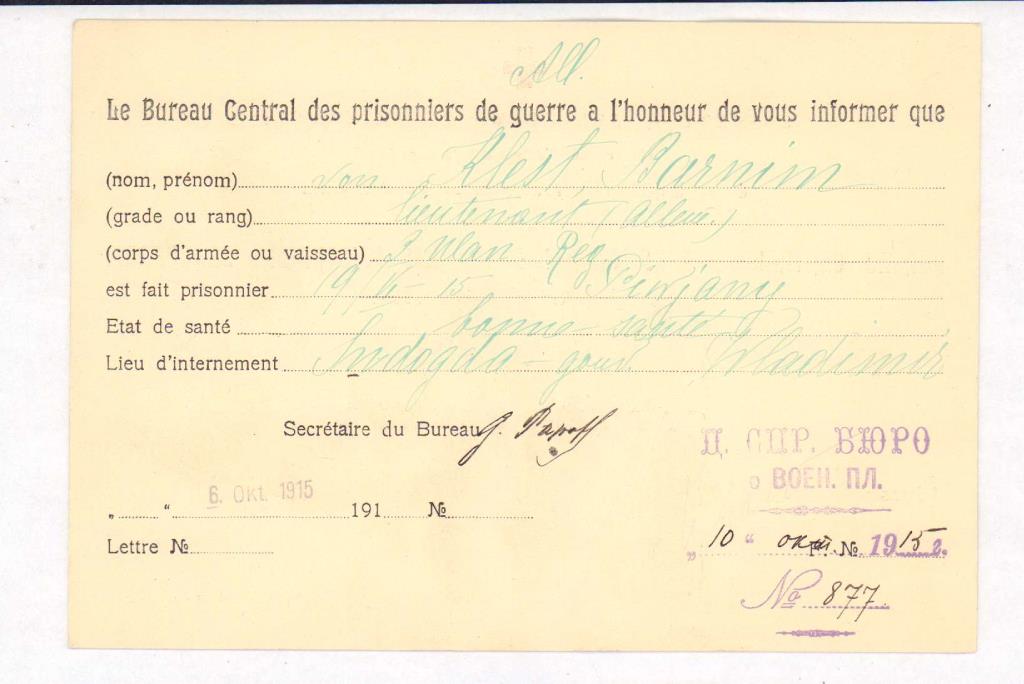 All.
Le Bureau Central des prisonniers de guerre a l'honneur de vous informer que
(nom, prénom) von Klest, Barnim
(grade ou rang) lieutenant (Allem.)
(corps d'armée ou vaisseau) 2 Ulan. Reg.
est fait prisonnier 19 15 Pinjany
Etat de santé bonne santé
Lieu d'internement Sudogda - gouv. Wladimir
Secrétaire du Bureau G. Papoff
Ц. СПР. БЮРО
о ВОЕН. ПЛ.
6. Okt. 1915
„ “ 191 №
„ 10 “ окт. № 1915 г.
Lettre №
№ 877